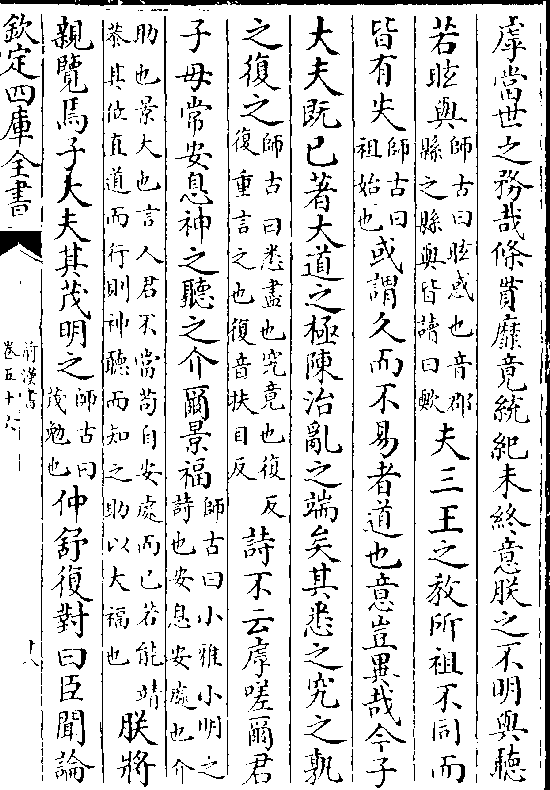 虖當世之務哉條貫靡竟統紀未終意朕之不明與聽
若眩與師古曰眩惑也音郡縣之縣與皆讀曰歟夫三王之教所祖不同而
皆有失師古曰祖始也或謂久而不易者道也意豈異哉今子
大夫既已著大道之極陳治亂之端矣其悉之究之孰
之復之師古曰悉盡也究竟也復反復重言之也復音扶目反詩不云虖嗟爾君
子毋常安息神之聽之介爾景福師古曰小雅小明之詩也安息安處也介
助也景大也言人君不當苟自安處而已若能靖恭其位直道而行則神聽而知之助以大福也朕將
親覽焉子大夫其茂明之師古曰茂勉也仲舒復對曰臣聞論
欽定四庫全書
前漢書
卷五十六
十八